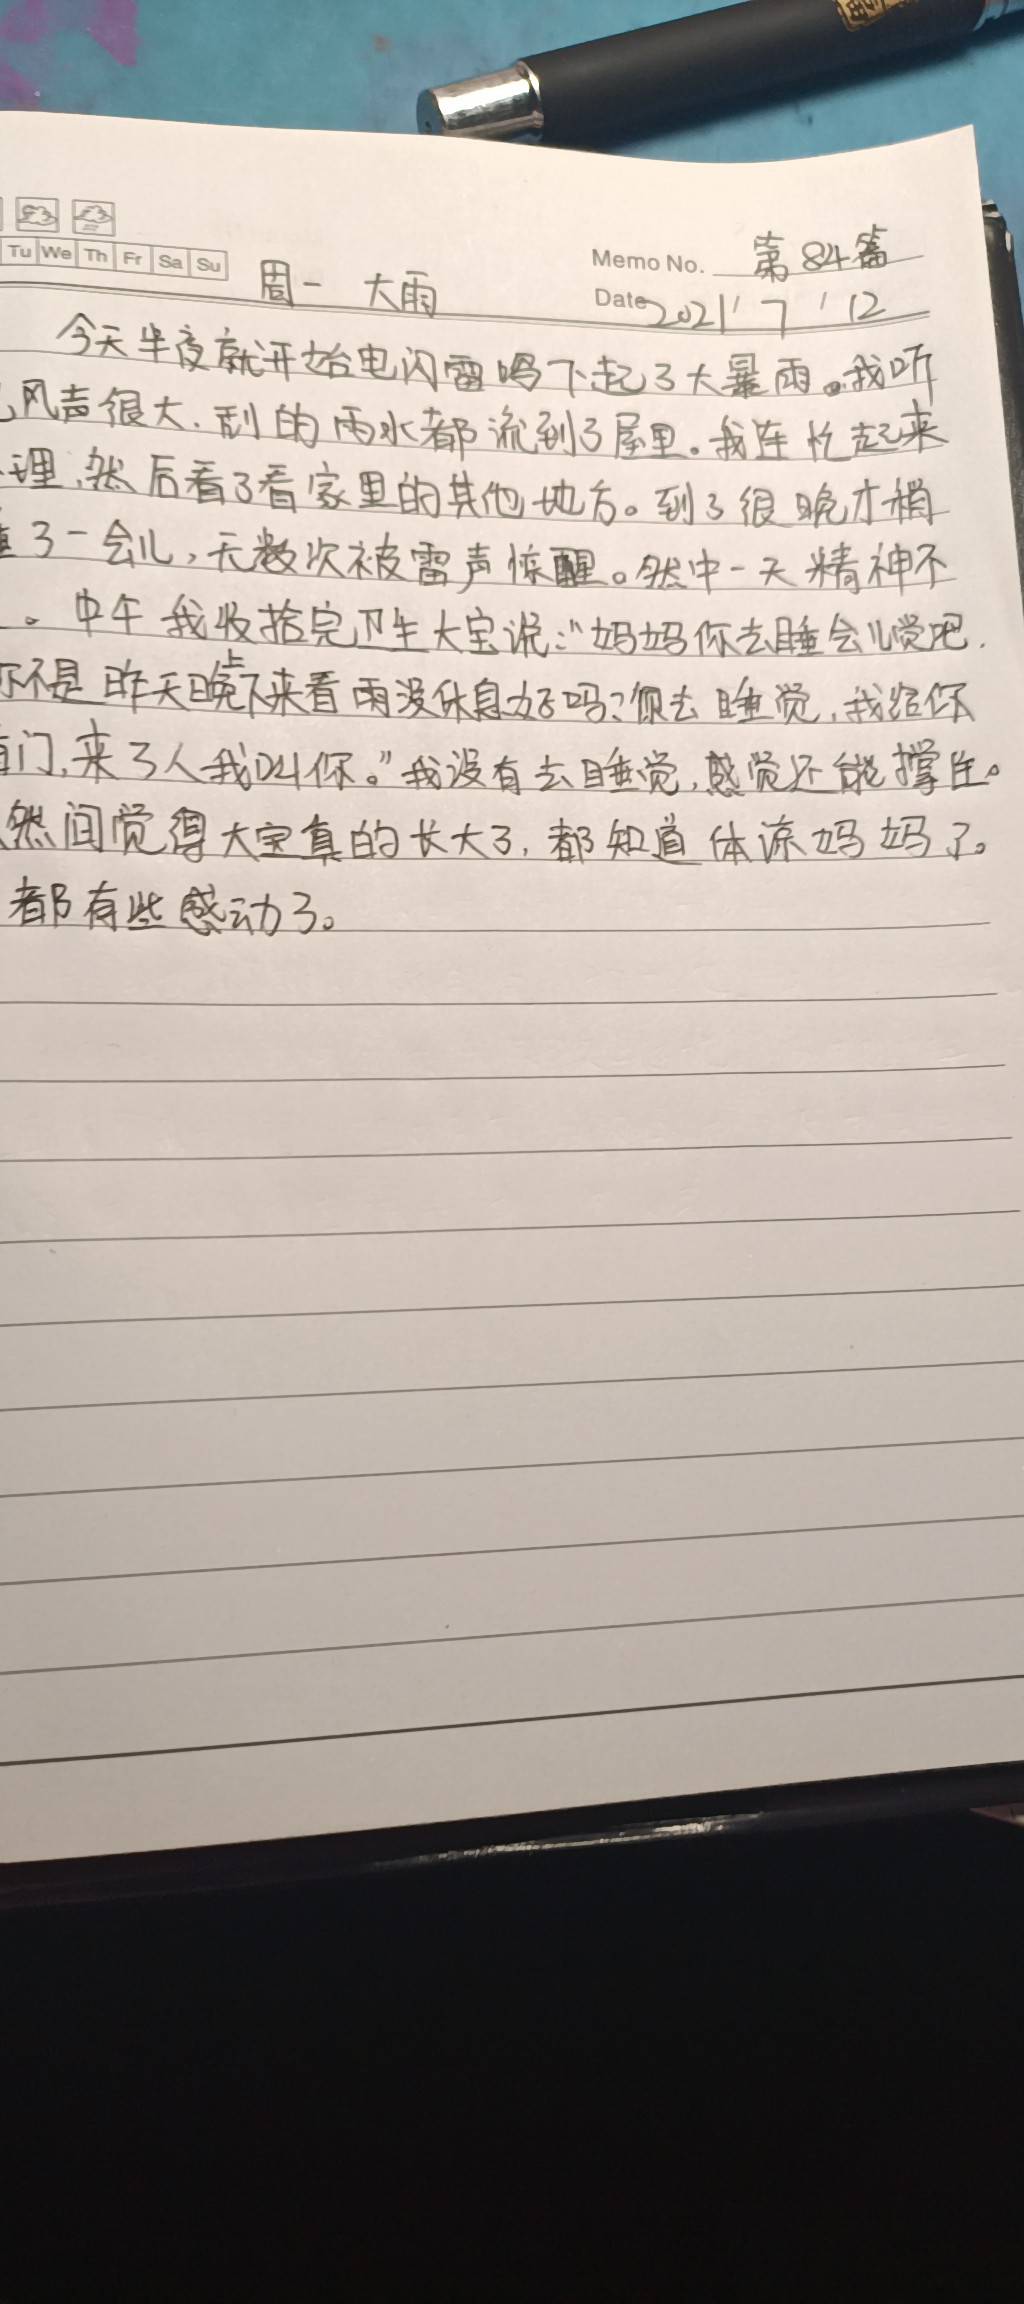 Tu We Th Fr Sa Su
Memo No. 第84篇
周一 大雨
Date 2021 7 12
今天半夜就开始电闪雷鸣下起了大暴雨。我听
风声很大.刮的雨水都流到了屋里。我连忙起来
理,然后看了看家里的其他地方。到了很晚才稍
了一会儿,无数次被雷声惊醒。然中一天精神不
。中午我收拾完卫生大宝说:"妈妈你去睡会儿觉吧.
不是昨天晚上下来看雨没休息好吗?你去睡觉,我给你
门,来了人我叫你。"我没有去睡觉,感觉还能撑住。
然间觉得大宝真的长大了,都知道体谅妈妈了。
都有些感动了。